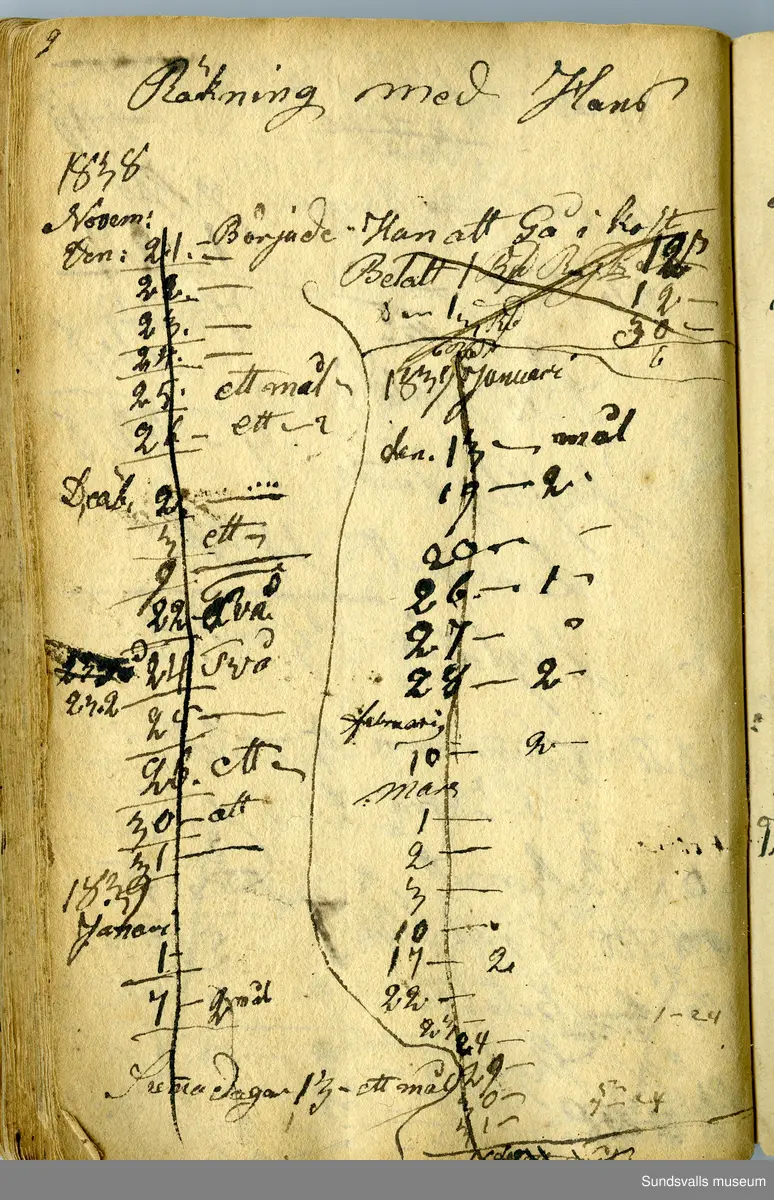 9
Räkning med Hans
1838
Novem:
Den: 21. - Började Han att Gå i kost
22. —
23. —
24. —
25. ett mål
26 - ett
Dceb, 2
3 ett
9
22 två
24 två
23.2
25 —
26. ett
30 - ett
31 —
1839
Januari
1 -
7 - 2 mål
13 - ett mål
Betalt 1
12
12 —
30 —
6
1839 Januari
den. 13 — mål
19 — 2
20 —
26. — 1
27 —
28 — 2
februari
10 — 2 —
mars
1 —
2 —
3 —
10 —
17 — 2
22 —
24 —
29 —
30 —
31 —
1 - 24
24
Sundsvalls museum